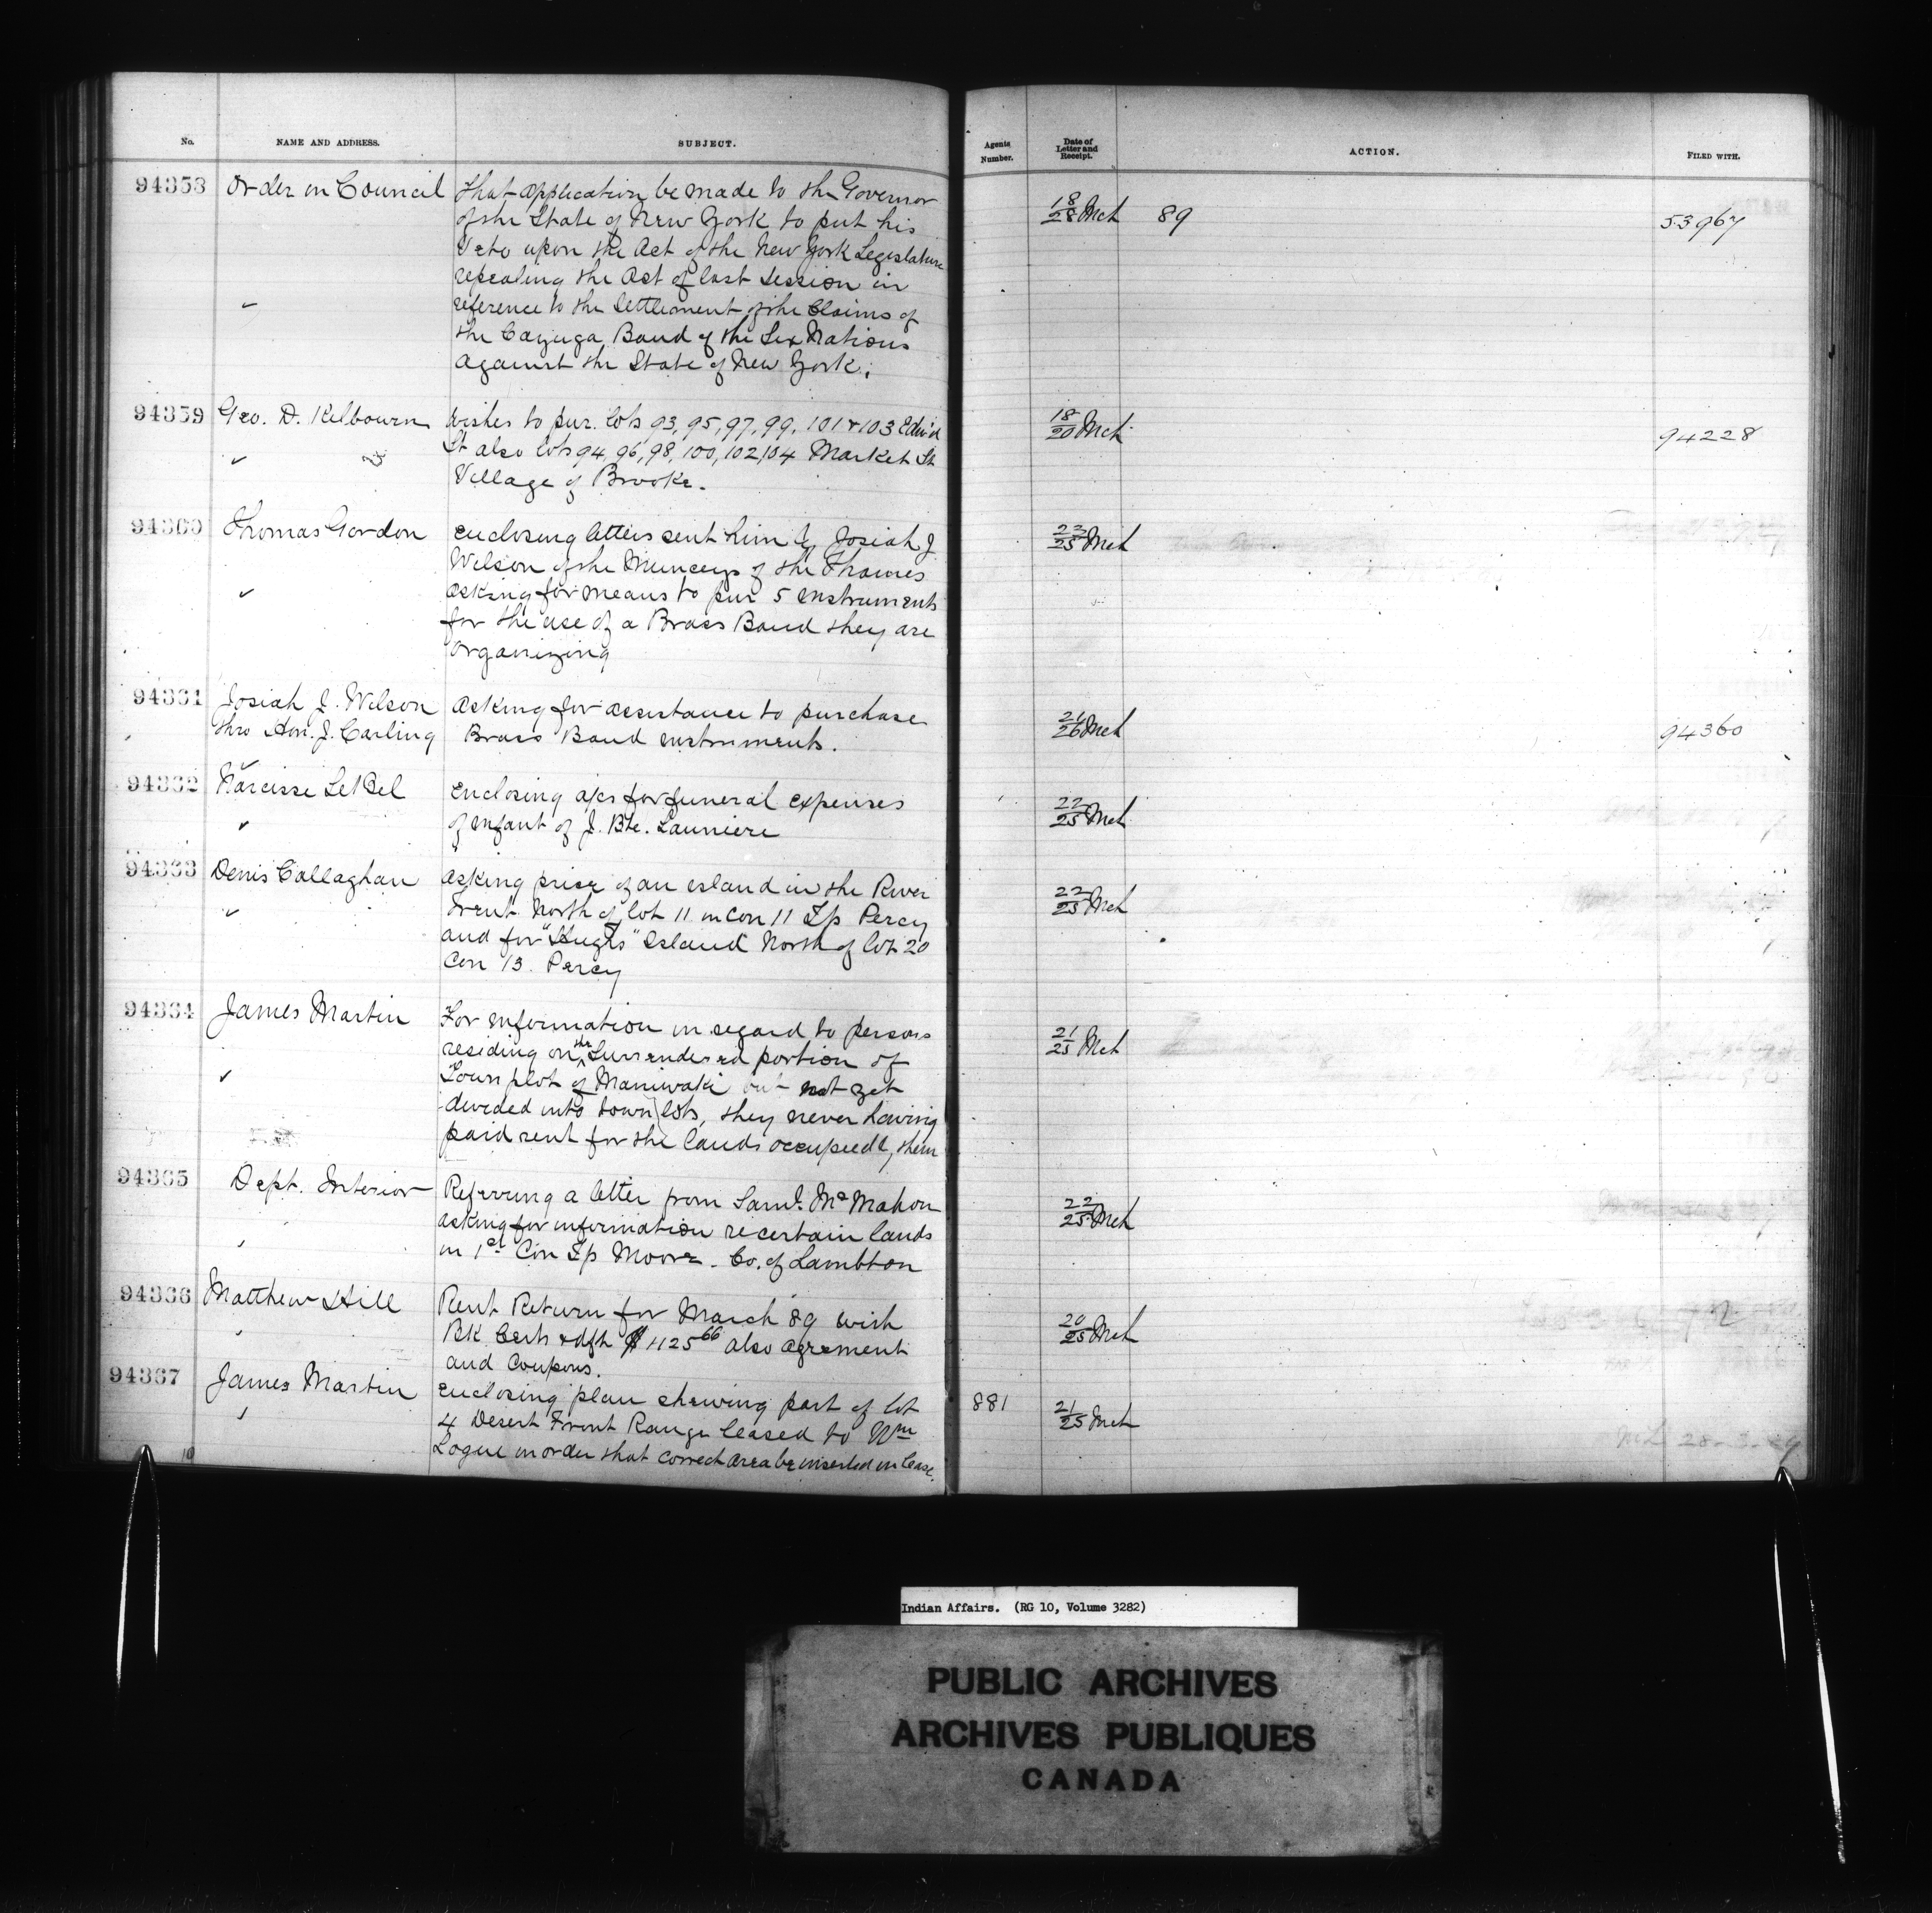 No. NAME AND ADDRESS. SUBJECT. Agents Number. Date of Letter and Receipt. ACTION. FILED WITH.
94358 Order in Council That application be made to the Governor 18/28 Mch 89 53967
of the State of New York to put his
Veto upon the Act of the New York Legislature
repealing the Act of last Session in
reference to the Settlement of the Claims of
the Cayuga Band of the Six Nations
against the State of New York.
94359 Geo. D. Kilbourn Wishes to pur. lots 93, 95, 97, 99, 101 & 103 Edw'd 18/20 Mch 94228
St also lots 94, 96, 98, 100, 102, 104 Market St
Village of Brooke.
94360 Thomas Gordon Enclosing letters sent him by Josiah J. 22/25 Mch
Wilson of the Munceys of the Thames
asking for means to pur 5 instruments
for the use of a Brass Band they are
organizing
94361 Josiah J. Wilson Asking for assistance to purchase 21/26 Mch 94360
thro Hon. J. Carling Brass Band instruments.
94362 Narcisse LeBel Enclosing a/cs for funeral expenses 22/25 Mch
of infant of J. Bte. Launiere
94363 Denis Callaghan Asking price of an island in the River 22/25 Mch
Trent North of lot 11 in Con 11 Tp Percy
and for "Hugh's" Island North of lot 20
Con 13. Percy
94364 James Martin For information in regard to persons 21/25 Mch
residing on the Surrendered portion of
Town plot of Maniwaki but not yet
divided into town lots, they never having
paid rent for the lands occupied by them
94365 Dept. Interior Referring a letter from Saml. McMahon 22/25 Mch
asking for information re certain lands
in 1st Con Tp Moore. Co. of Lambton
94366 Matthew Hill Rent Return for March 89 with 20/25 Mch
BK Certs & dft $1125 66 also agreement
and Coupons.
94367 James Martin Enclosing plan shewing part of lot 881 21/25 Mch
4 Desert Front Range leased to Wm
Logue in order that correct area be inserted in lease.
28-3-89
Indian Affairs. (RG 10, Volume 3282)
PUBLIC ARCHIVES
ARCHIVES PUBLIQUES
CANADA